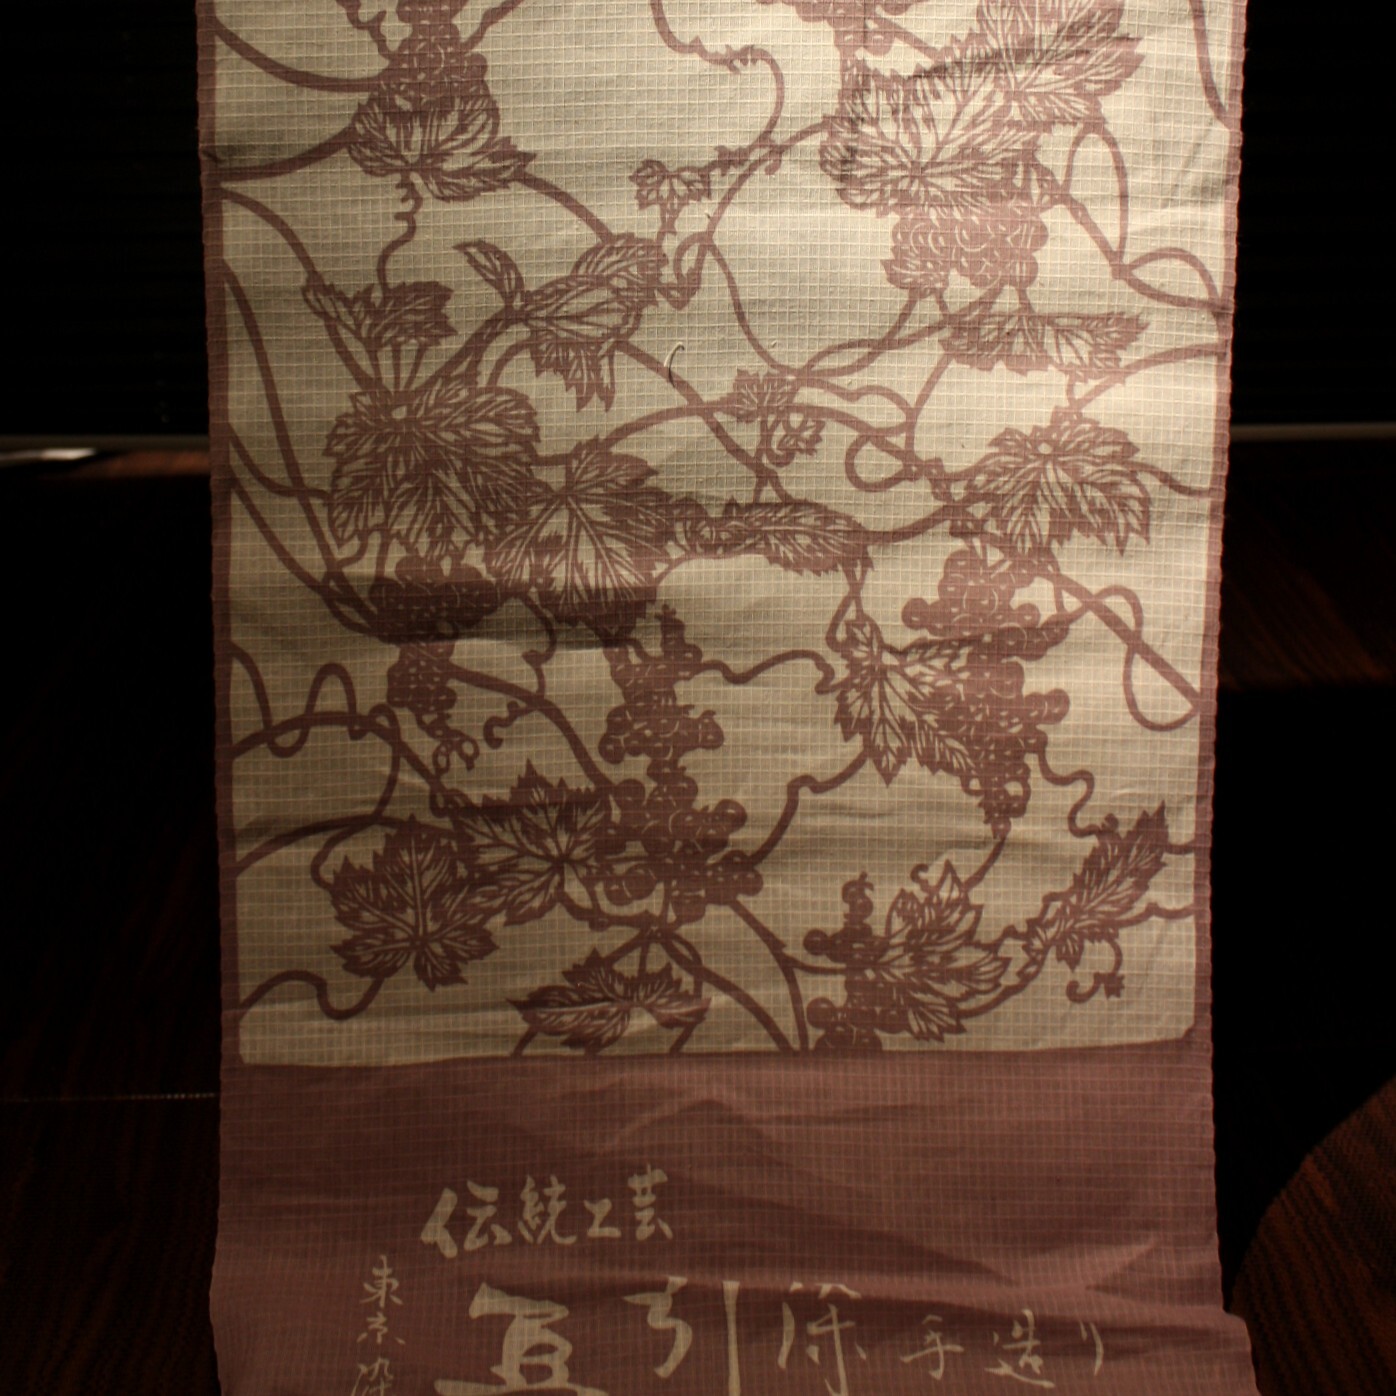 伝統工芸
引染手造り
東京染